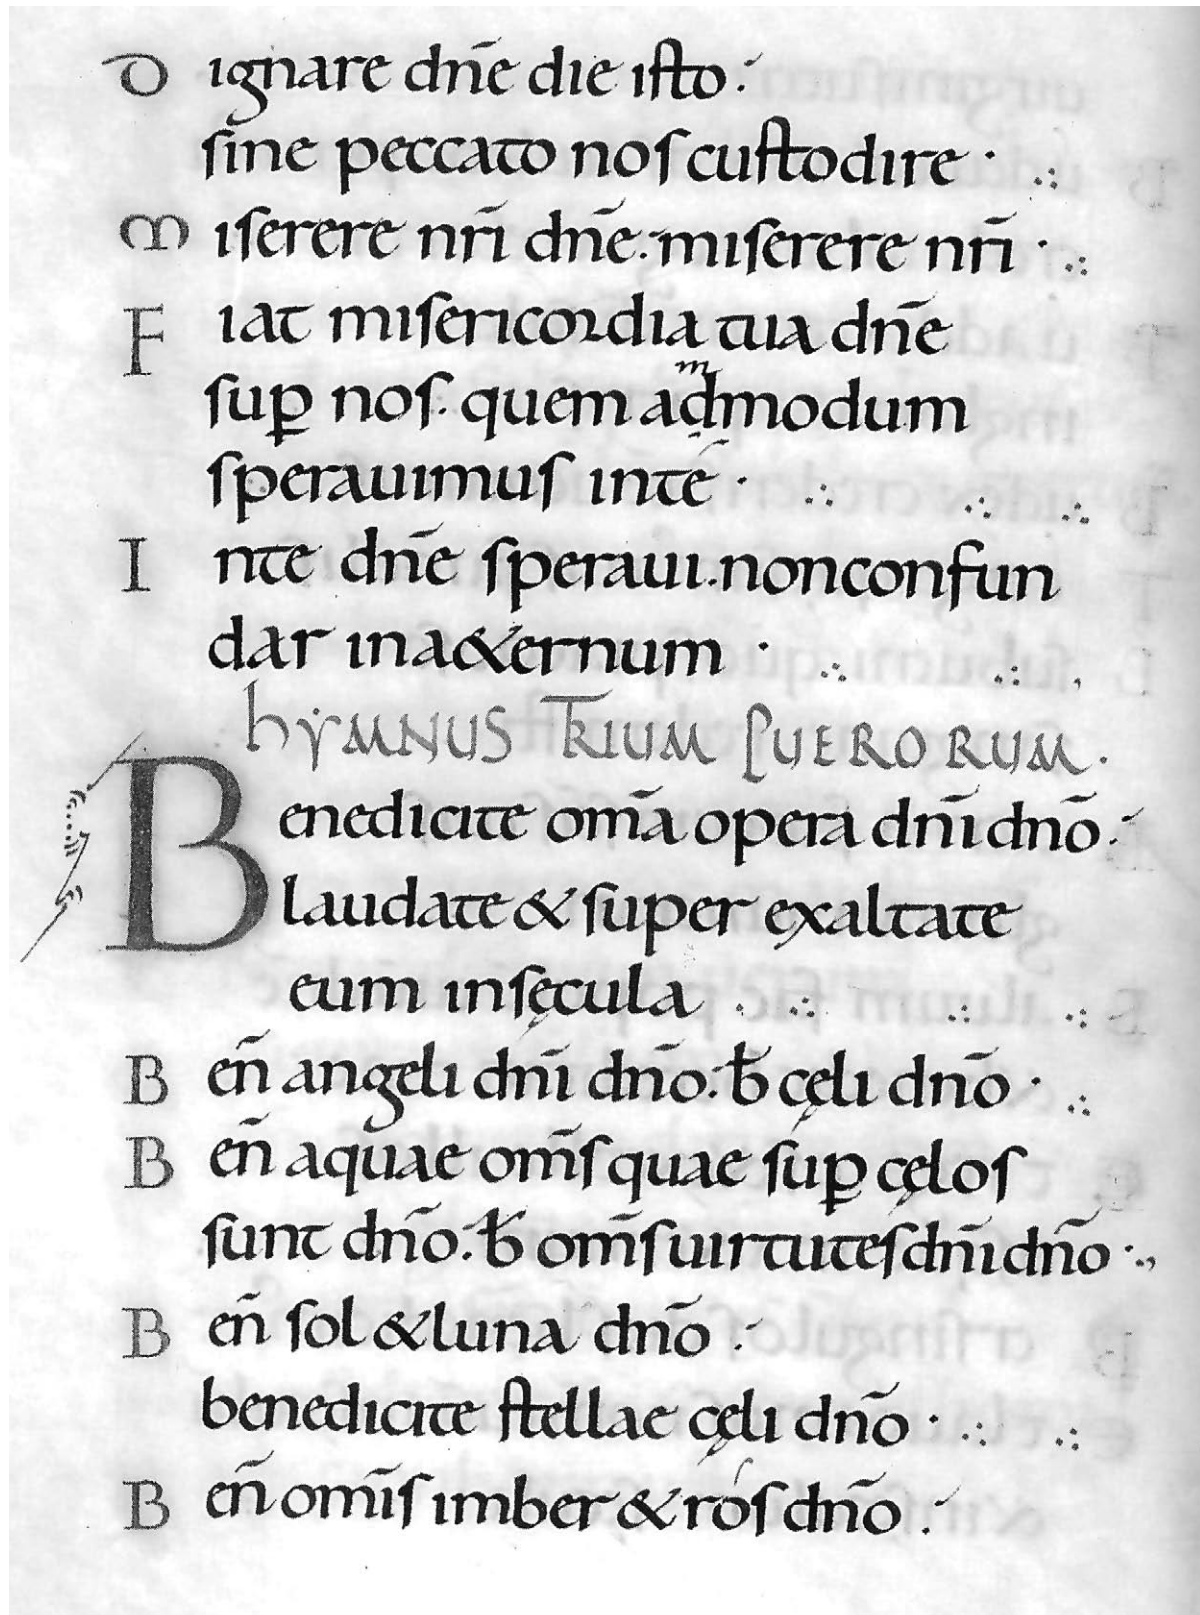 Dignare dn̄e die iſto:
ſine peccato noſ cuſtodire ·
Miſerere nr̄i dn̄e: miſerere nr̄i ·
Fiat miſericordia tua dn̄e
ſuꝑ noſ. quem admodum
ſperauimuſ inte ·
Inte dn̄e ſperaui. nonconfun
dar ina&ernum ·
hẏMNUS TRIUM PUERORUM.
Benedicite om̄a opera dn̄i dn̄o:
laudate & ſuper exaltate
eum inſęcula ·
Ben̄ angeli dn̄i dn̄o: ƀ cęli dn̄o ·
Ben̄ aquae om̄ſ quae ſuꝑ cęloſ
ſunt dn̄o: ƀ om̄ſ uirtuteſ dn̄i dn̄o ·
Ben̄ ſol & luna dn̄o:
benedicite ſtellae cęli dn̄o ·
Ben̄ om̄iſ imber & róſ dn̄o: